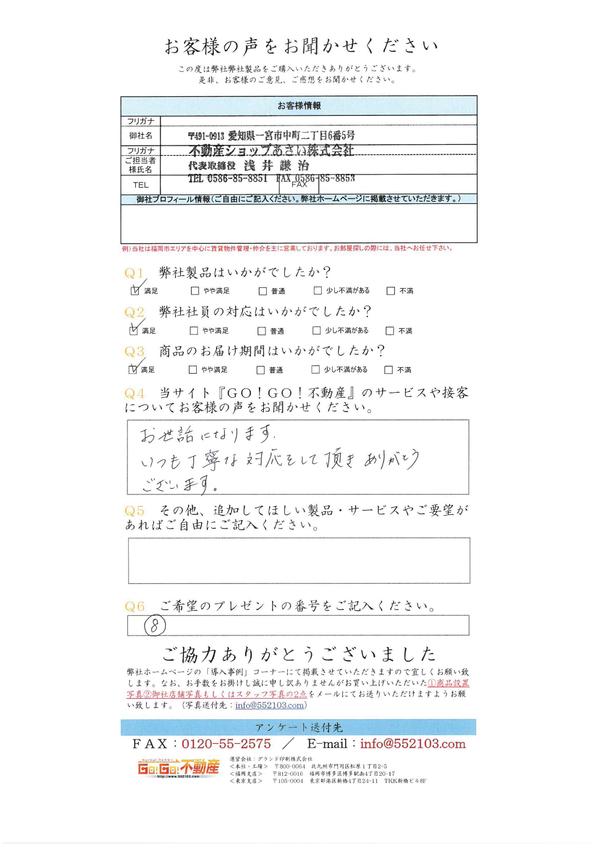 お客様の声をお聞かせください
この度は弊社弊社製品をご購入いただきありがとうございます。
是非、お客様のご意見、ご感想をお聞かせください。
お客様情報
フリガナ
御社名
〒491-0913 愛知県一宮市中町二丁目6番5号
フリガナ
不動産ショップあさい株式会社
ご担当者
様氏名
代表取締役 浅井謙治
TEL 0586-85-8851 FAX 0586-85-8853
TEL
FAX
御社プロフィール情報(ご自由にご記入ください。弊社ホームページに掲載させていただきます。)
例)当社は福岡市エリアを中心に賃貸物件管理・仲介を主に営業しております。お部屋探しの際には、当社へお任せ下さい。
Q1 弊社製品はいかがでしたか?
満足 やや満足 普通 少し不満がある 不満
Q2 弊社社員の対応はいかがでしたか?
満足 やや満足 普通 少し不満がある 不満
Q3 商品のお届け期間はいかがでしたか?
満足 やや満足 普通 少し不満がある 不満
Q4 当サイト『GO!GO!不動産』のサービスや接客
についてお客様の声をお聞かせください。
お世話になります。
いつも丁寧な対応をして頂きありがとう
ございます。
Q5 その他、追加してほしい製品・サービスやご要望が
あればご自由にご記入ください。
Q6 ご希望のプレゼントの番号をご記入ください。
⑧
ご協力ありがとうございました
弊社ホームページの「導入事例」コーナーにて掲載させていただきますので宜しくお願い致
します。なお、お手数をお掛けし誠に申し訳ありませんがお買い上げいただいた①商品設置
写真②御社店舗写真もしくはスタッフ写真の2点をメールにてお送りいただけますようお願
い致します。(写真送付先:info@552103.com)
アンケート送付先
FAX:0120-55-2575 / E-mail:info@552103.com
GO!GO!不動産
http://www.552103.com
運営会社:グランド印刷株式会社
<本社・工場> 〒800-0064 北九州市門司区松原1丁目2-5
<福岡支店> 〒812-0016 福岡市博多区博多駅南4丁目20-17
<東京支店> 〒105-0004 東京都港区新橋4丁目24-11 TKK新橋ビル8F